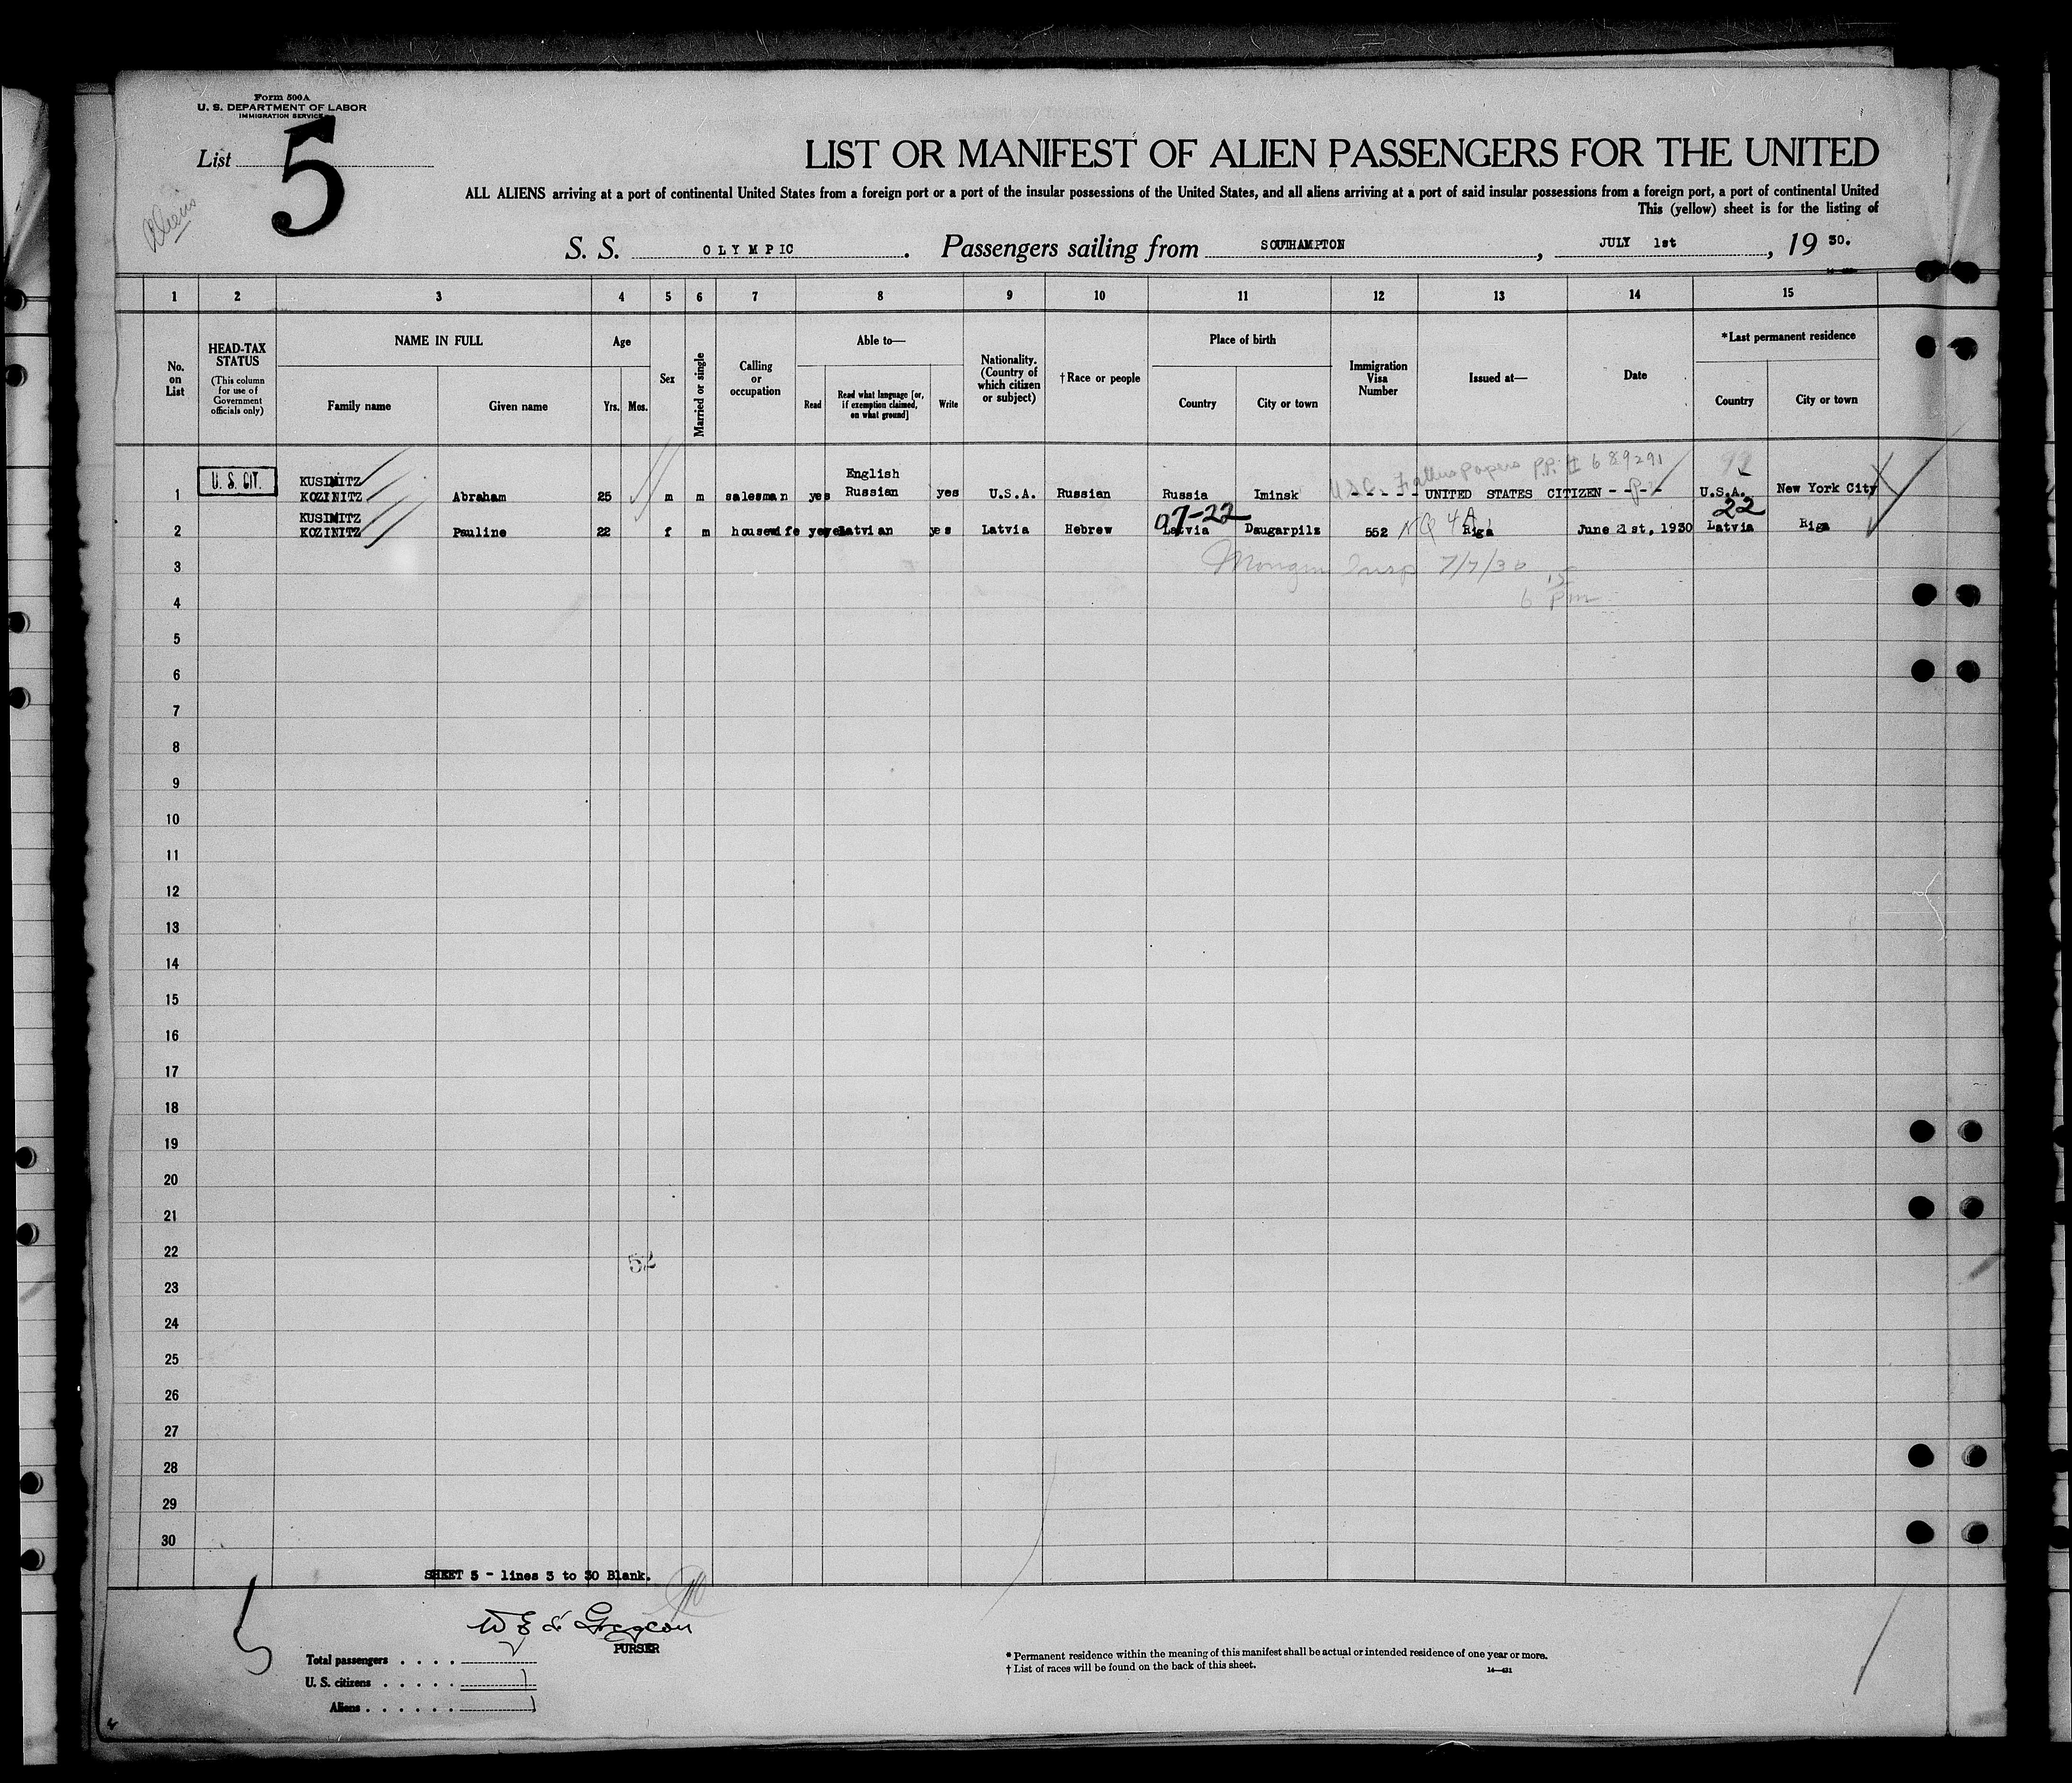 Form 500A
U. S. DEPARTMENT OF LABOR
IMMIGRATION SERVICE
List 5
Aliens
LIST OR MANIFEST OF ALIEN PASSENGERS FOR THE UNITED
ALL ALIENS arriving at a port of continental United States from a foreign port or a port of the insular possessions of the United States, and all aliens arriving at a port of said insular possessions from a foreign port, a port of continental United
This (yellow) sheet is for the listing of
S. S. OLYMPIC. Passengers sailing from SOUTHAMPTON, JULY 1st, 19 30.
1 2 3 4 5 6 7 8 9 10 11 12 13 14 15
No. on List
HEAD-TAX STATUS
(This column for use of Government officials only)
NAME IN FULL
Family name
Given name
Age
Yrs.
Mos.
Sex
Married or single
Calling or occupation
Able to—
Read
Read what language [or, if exemption claimed, on what ground]
Write
Nationality. (Country of which citizen or subject)
†Race or people
Place of birth
Country
City or town
Immigration Visa Number
Issued at—
Date
*Last permanent residence
Country
City or town
U.S.C. Fathers papers P.P. # 689291
99
U. S. CIT. KUSIMITZ English
1 KOZINITZ Abraham 25 m m salesman yes Russian yes U.S.A. Russian Russia Iminsk - - - - - UNITED STATES CITIZEN - - - - U.S.A. New York City
KUSIMITZ 07-22 22
2 KOZINITZ Pauline 22 f m housewife yes Latvian yes Latvia Hebrew Latvia Daugarpils 552 NQ 4A Riga June 21st, 1930 Latvia Riga
3 Insp 7/7/30
4 6 15 Pm
5
6
7
8
9
10
11
12
13
14
15
16
17
18
19
20
21
22 52
23
24
25
26
27
28
29
30
SHEET 5 - lines 3 to 30 Blank.
PURSER
Total passengers . . . .
U. S. citizens . . . . . 1
Aliens . . . . . . 1
* Permanent residence within the meaning of this manifest shall be actual or intended residence of one year or more.
† List of races will be found on the back of this sheet.
14—431